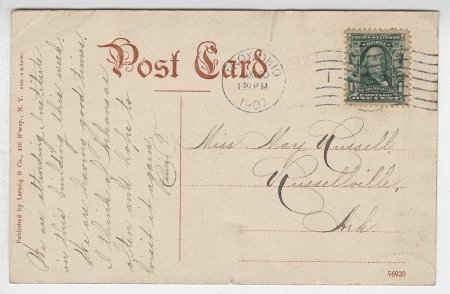 Post Card
OHIO
1 30 PM
1907
UNITED STATES
ONE CENT
Miss Mary Russell,
Russellville,
Ark.
We are attending Institute
in this building this week.
We are having good times.
I think of Arkansas
often and hope to
visit it again.
Published by Laensig & Co., 416 B'way, N. Y.
96920